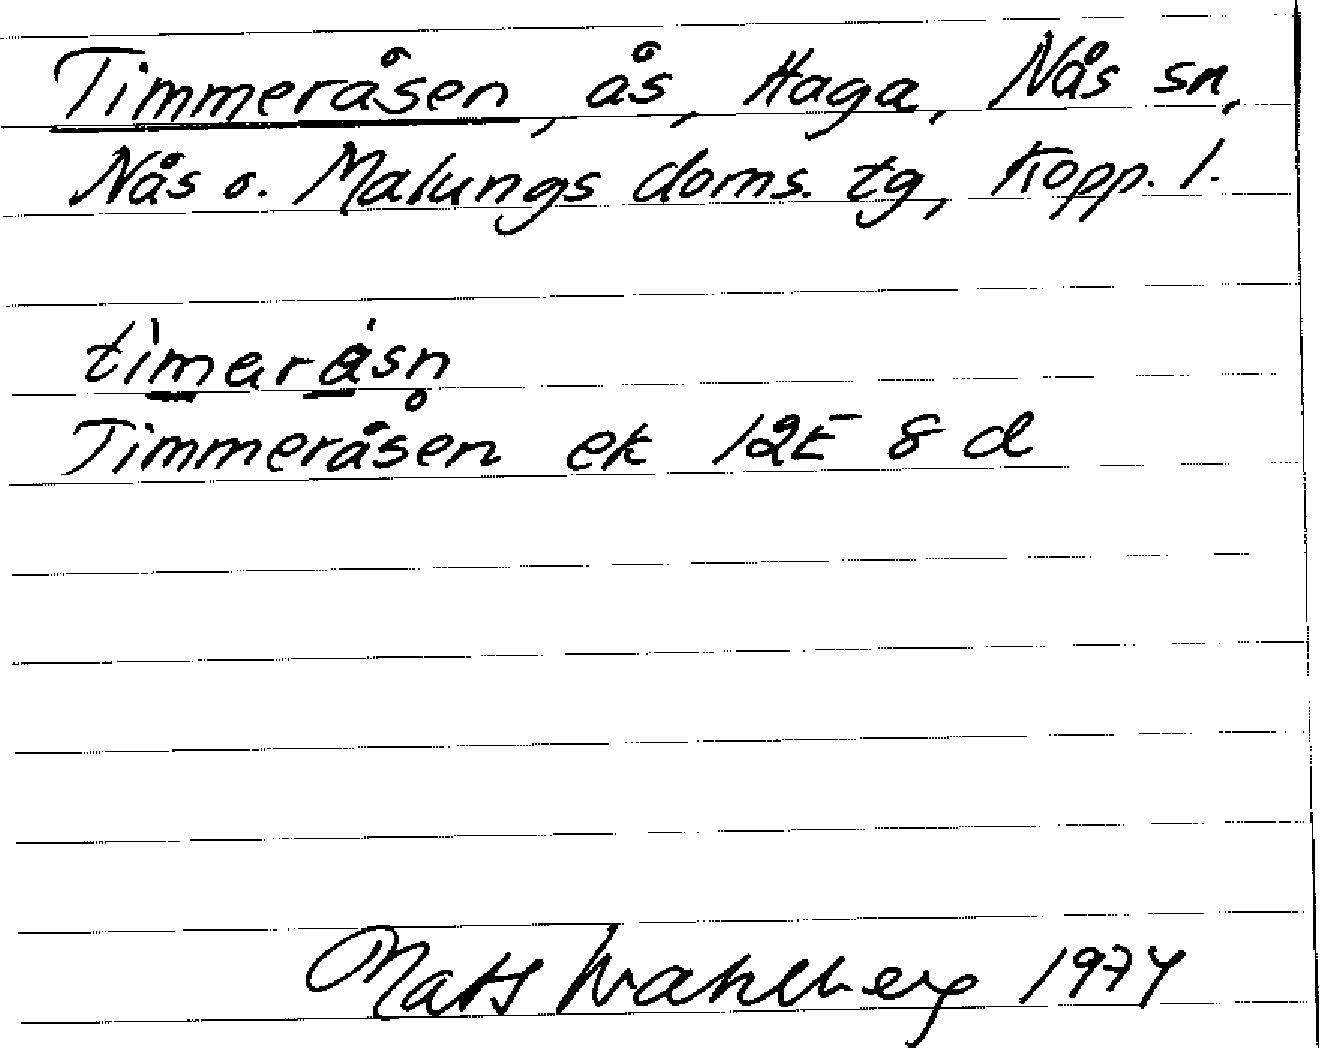 Timmeråsen, ås, Haga, Nås sn,
Nås o. Malungs doms. tg, Kopp. l.
tìmaråsn̥
Timmeråsen ek 12E 8 d
Mats Wahlberg 1974